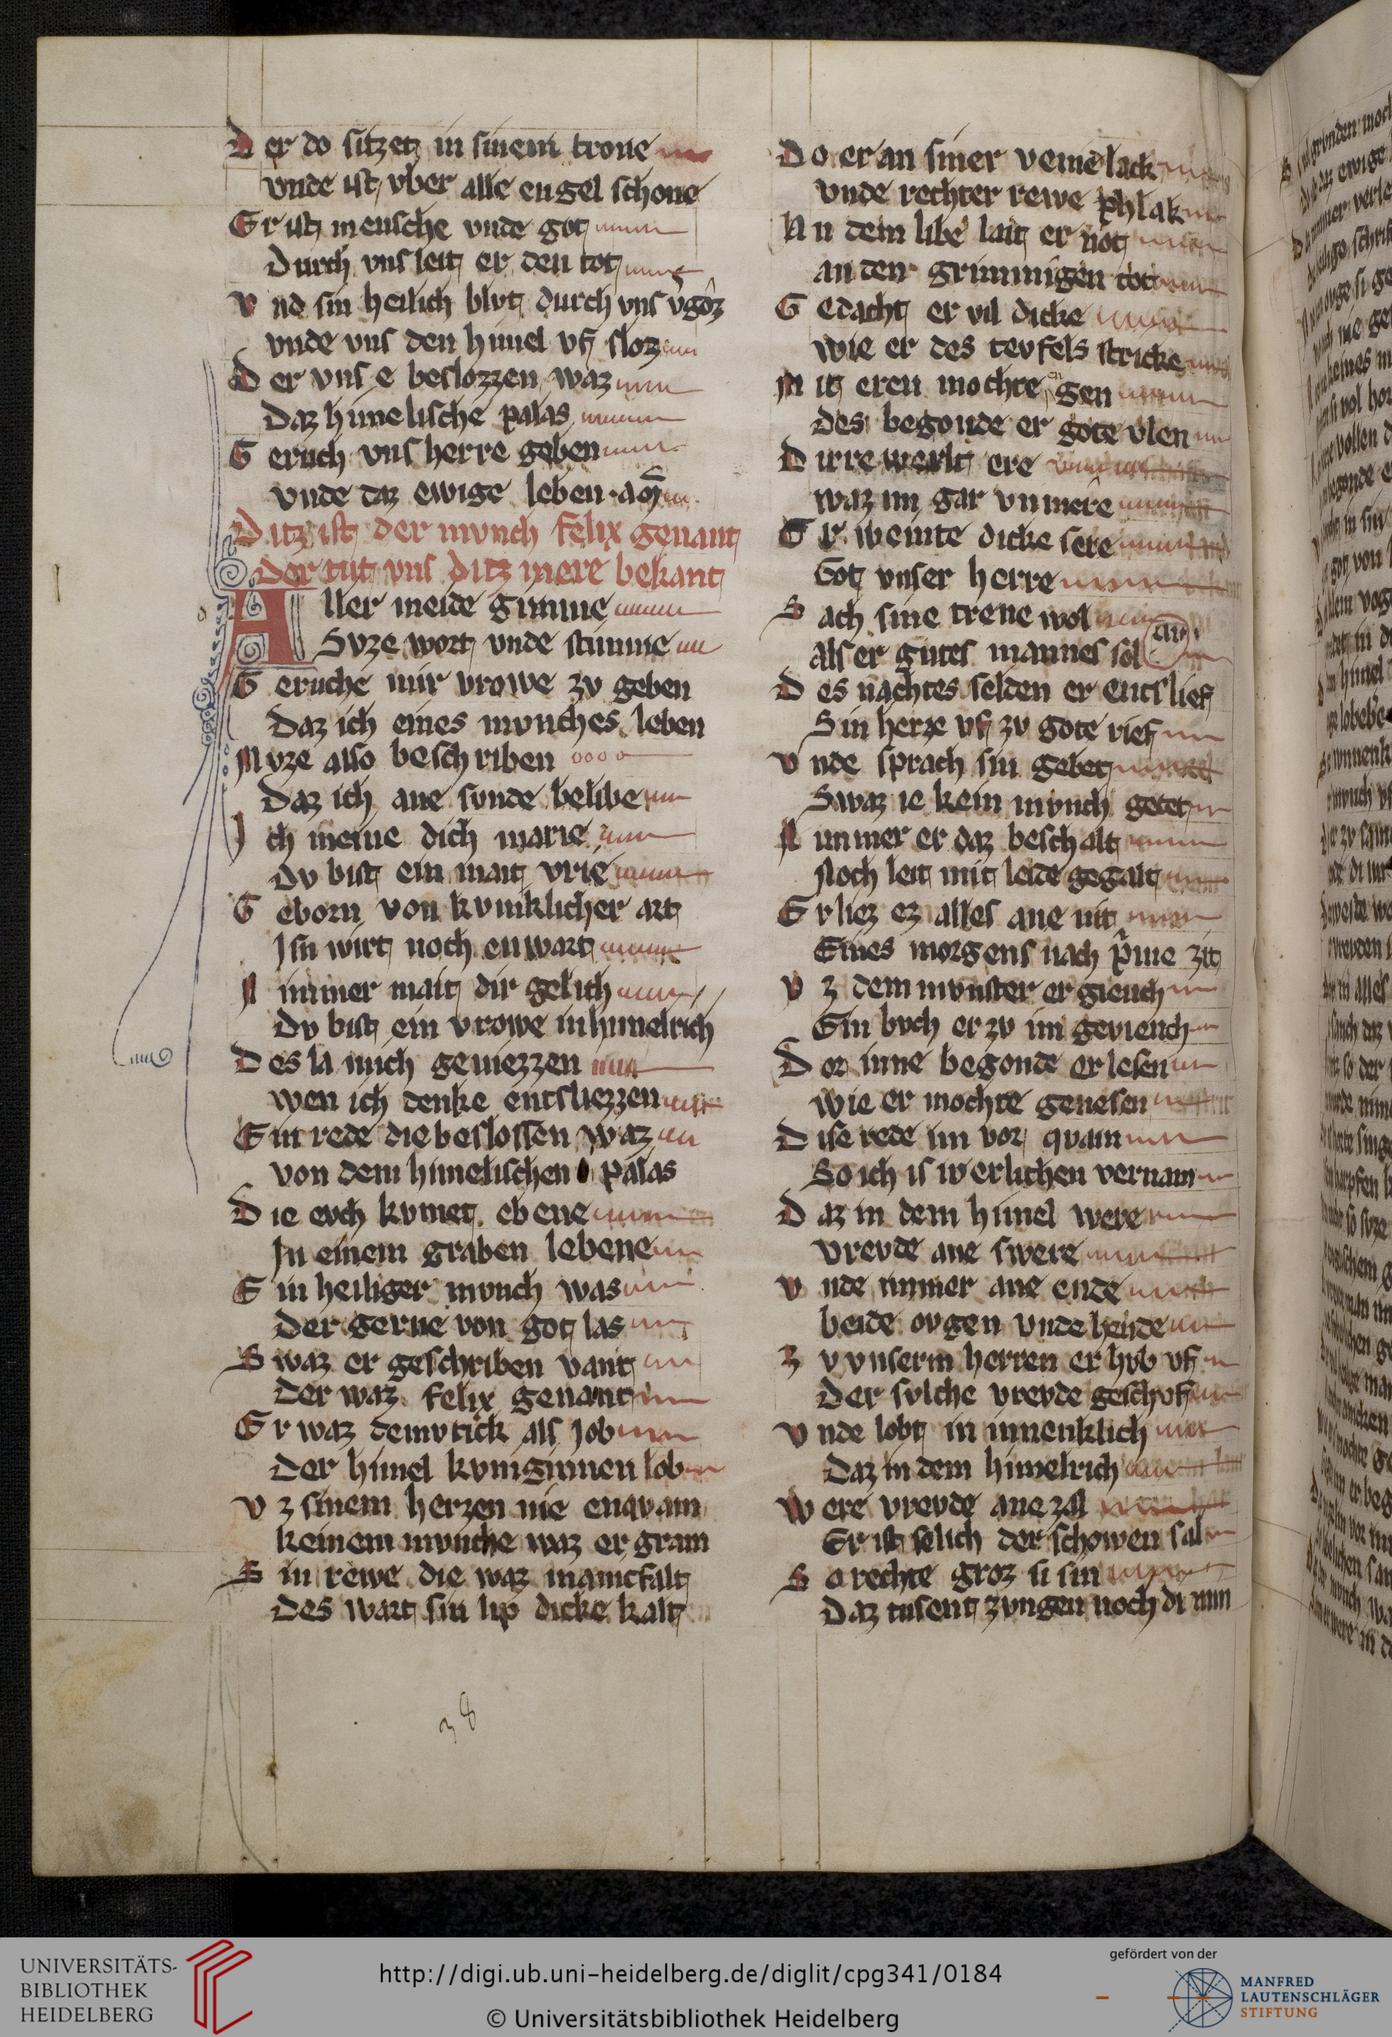 Der do sitzet in sinem trone
vnde ist vber alle engel schone
Er ist mensche vnde got
Durch vns leit er den tot
Vnd sin heilich blvt durch vns v̓goz
vnde vns den himel vf sloz
Der vns e beslozzen waz
Daz himelische palas
Geruch vns herre geben
vnde daz ewige leben · am̄
Ditz ist der mvnch felix genant
der tut vns ditz mere bekant
Aller meide gimme
Svze wort vnde stimme
Geruche mir vrowe zv geben
Daz ich eines mvnches leben
Mvze also beschriben
Daz ich ane sunde belibe
Ich meine dich marie
Dv bist ein mait vrie
Geborn von kvniklicher art
Isn wirt noch enwart
Nimmer mait dir gelich
Dv bist ein vrowe in himelrich
Des la mich geniezzen
wen ich denke entsliezzen
Ein rede die beslossen waz
von dem himelischen palas
Die evch kvmet ebene
In einem graben lebene
Ein heiliger mvnch was
Der gerne von got las
Swaz er geschriben vant
Der waz felix genant
Er waz demvtick als Job
Der himel kvniginnen lob
Vz sinem herzen nie enqvam
keinem mvnche waz er gram
Sin rewe die waz manicfalt
Des wart sin lip dicke kalt
Do er an siner venie lack
vnde rechter rewe phlak
An dem libe lait er not
an den grimmigen tot
Gedacht er vil dicke
wie er des tevfels stricke
Mit eren mochte gen
des begonde er gote vlen
Dirre werlt ere
waz im gar vnmere
Er weinte dicke sere
Got vnser herre
Sach sine trene wol
als er gutes mannes sol
an
Des nachtes selden er entslief
Sin herze vf zv gote rief
Vnde sprach sin gebet
Swaz ie kein mvnch getet
Nimmer er daz beschalt
Noch leit mit leide gegalt
Er liez ez alles ane nit
Eines morgens nach p̄me zit
Vz dem mvnster er giench
Ein bvch er zv im geviench
Dor inne begonde er lesen
wie er mochte genesen
Dise rede im vor quam
So ich is werlichen vernam
Daz in dem himel were
vrevde ane swere
Vnde immer ane ende
beide ovgen vnde hende
Zv vnserm herren er hvb vf
Der svlche vrevde geschvf
Vnde lobt in innenklich
Daz in dem himelrich
Were vrevde ane zal
Er ist selich der schowen sal
So rechte groz si sin
Daz tusent zvngen noch di min
38
UNIVERSITÄTS-
BIBLIOTHEK
HEIDELBERG
http://digi.ub.uni-heidelberg.de/diglit/cpg341/0184
© Universitätsbibliothek Heidelberg
gefördert von der
MANFRED
LAUTENSCHLÄGER
STIFTUNG